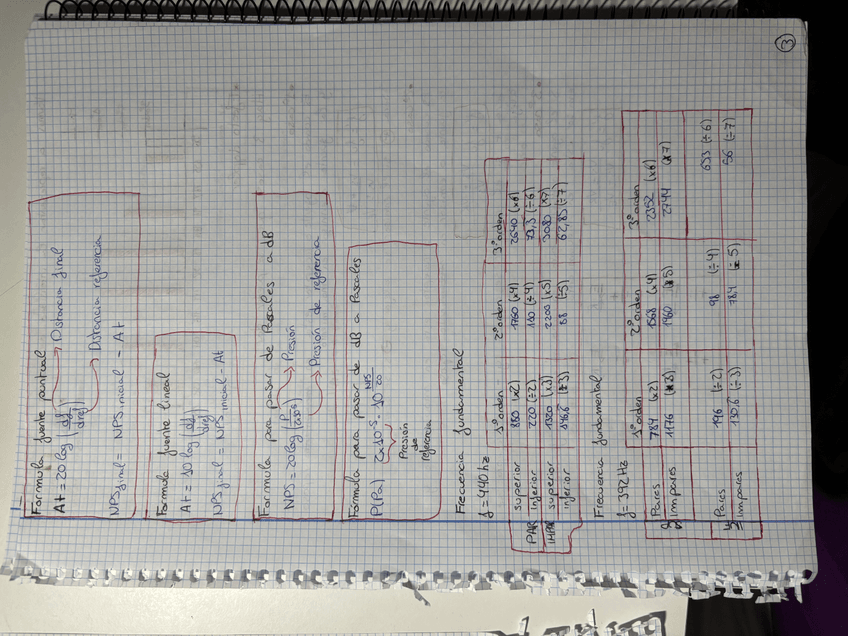 3
Formula fuente puntual
At = 20 log (df/dref)
Distancia final
Distancia referencia
NPSfinal = NPSinicial - At
Formula fuente lineal
At = 10 log (df/dref)
NPSfinal = NPSinicial - At
Formula para pasar de Pascales a dB
NPS = 20 log (P/2x10⁻⁵)
Presión
Presión de referencia
Fórmula para pasar de dB a Pascales
P(Pa) 2x10⁻⁵ · 10^(NPS/20)
Presión
de
referencia
Frecuencia fundamental
f = 440 hz
1º orden 2º orden 3º orden
PAR superior 880 (x2) 1760 (x4) 2640 (x6)
inferior 220 (÷2) 110 (÷4) 73,3 (÷6)
IMPAR superior 1320 (x3) 2200 (x5) 3080 (x7)
inferior 146,6 (÷3) 88 (÷5) 62,85 (÷7)
Frecuencia fundamental
f = 392 Hz
1º orden 2º orden 3º orden
Pares 784 (x2) 1568 (x4) 2352 (x6)
Impares 1176 (x3) 1960 (x5) 2744 (x7)
Pares 196 (÷2) 98 (÷4) 65,3 (÷6)
Impares 130,6 (÷3) 78,4 (÷5) 56 (÷7)